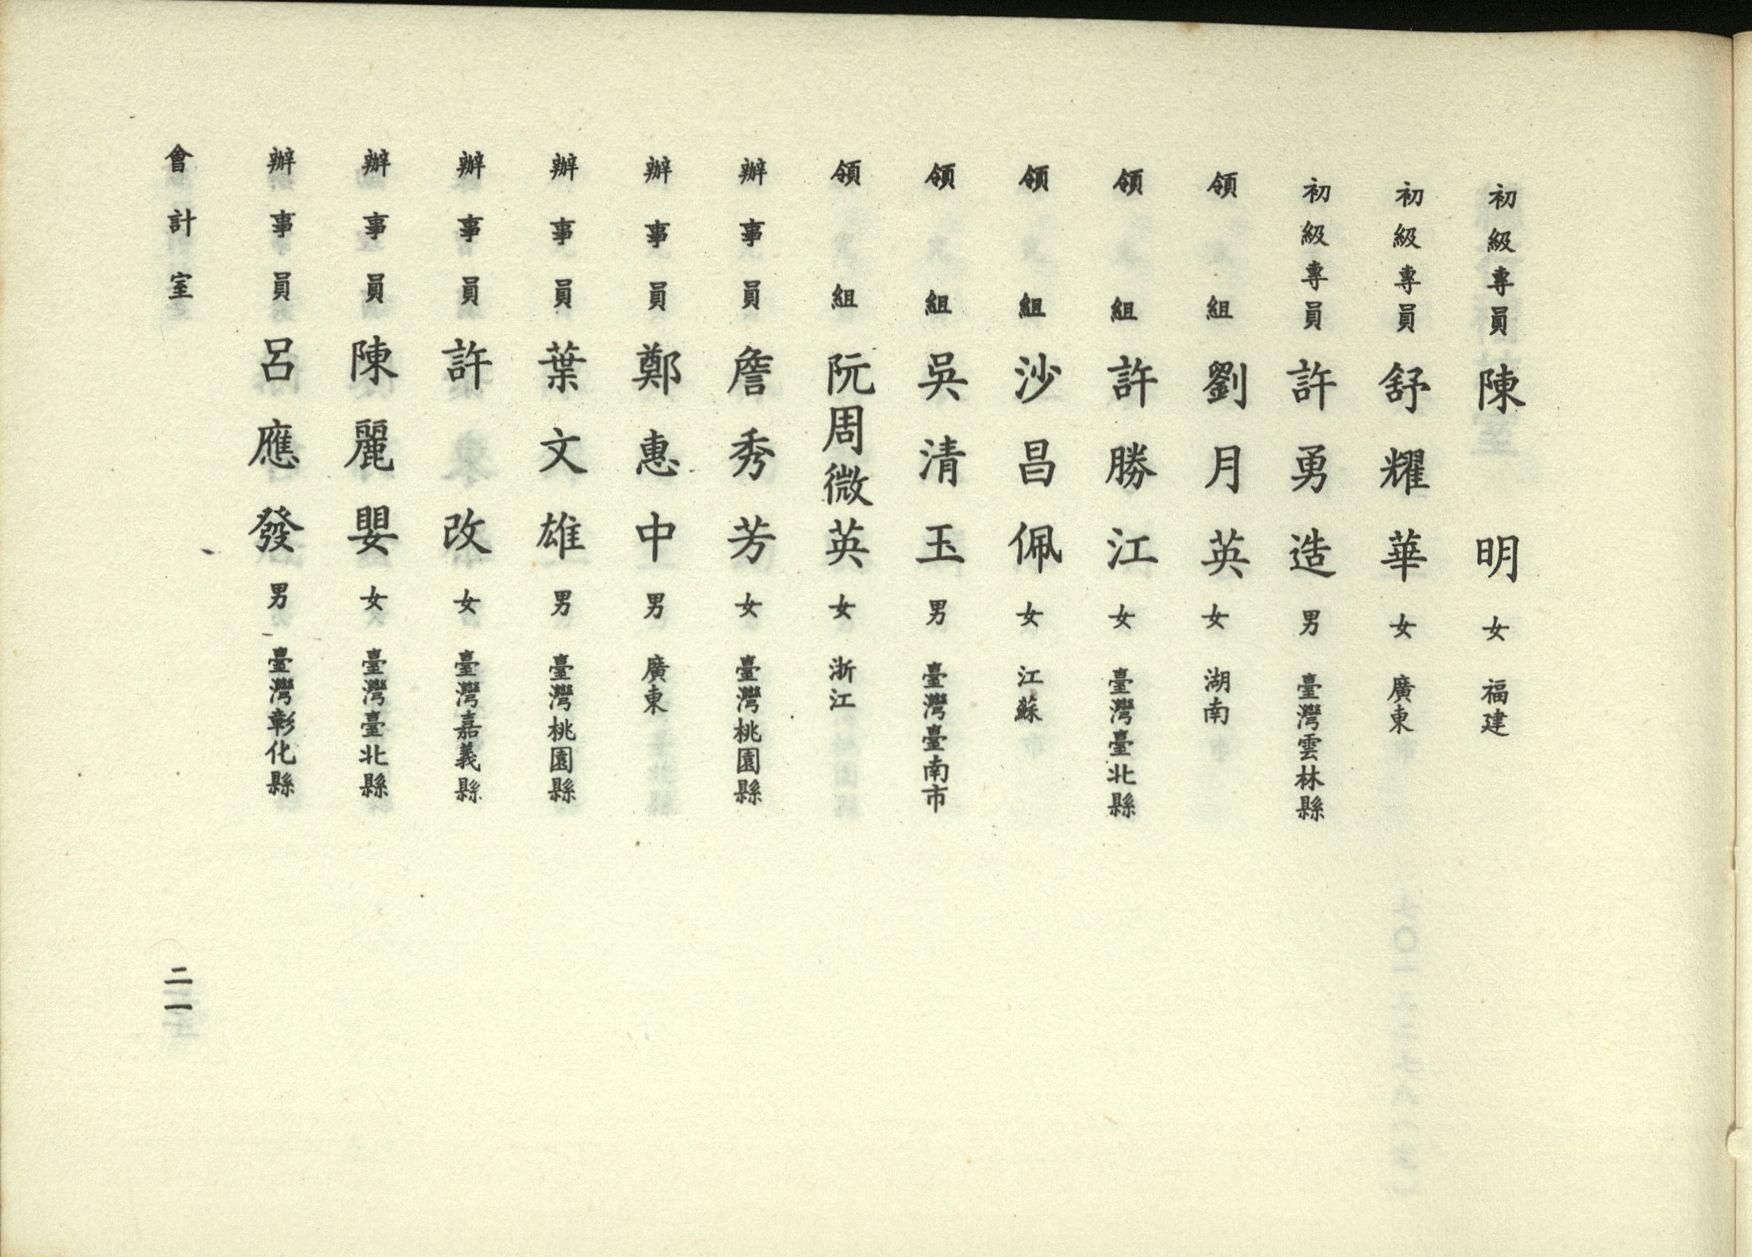 初級專員 陳明 女 福建
初級專員 舒耀華 女 廣東
初級專員 許勇造 男 臺灣雲林縣
領組 劉月英 女 湖南
領組 許勝江 女 臺灣臺北縣
領組 沙昌佩 女 江蘇
領組 吳清玉 男 臺灣臺南市
領組 阮周微英 女 浙江
辦事員 詹秀芳 女 臺灣桃園縣
辦事員 鄭惠中 男 廣東
辦事員 葉文雄 男 臺灣桃園縣
辦事員 許改 女 臺灣嘉義縣
辦事員 陳麗嬰 女 臺灣臺北縣
辦事員 呂應發 男 臺灣彰化縣
會計室 二一